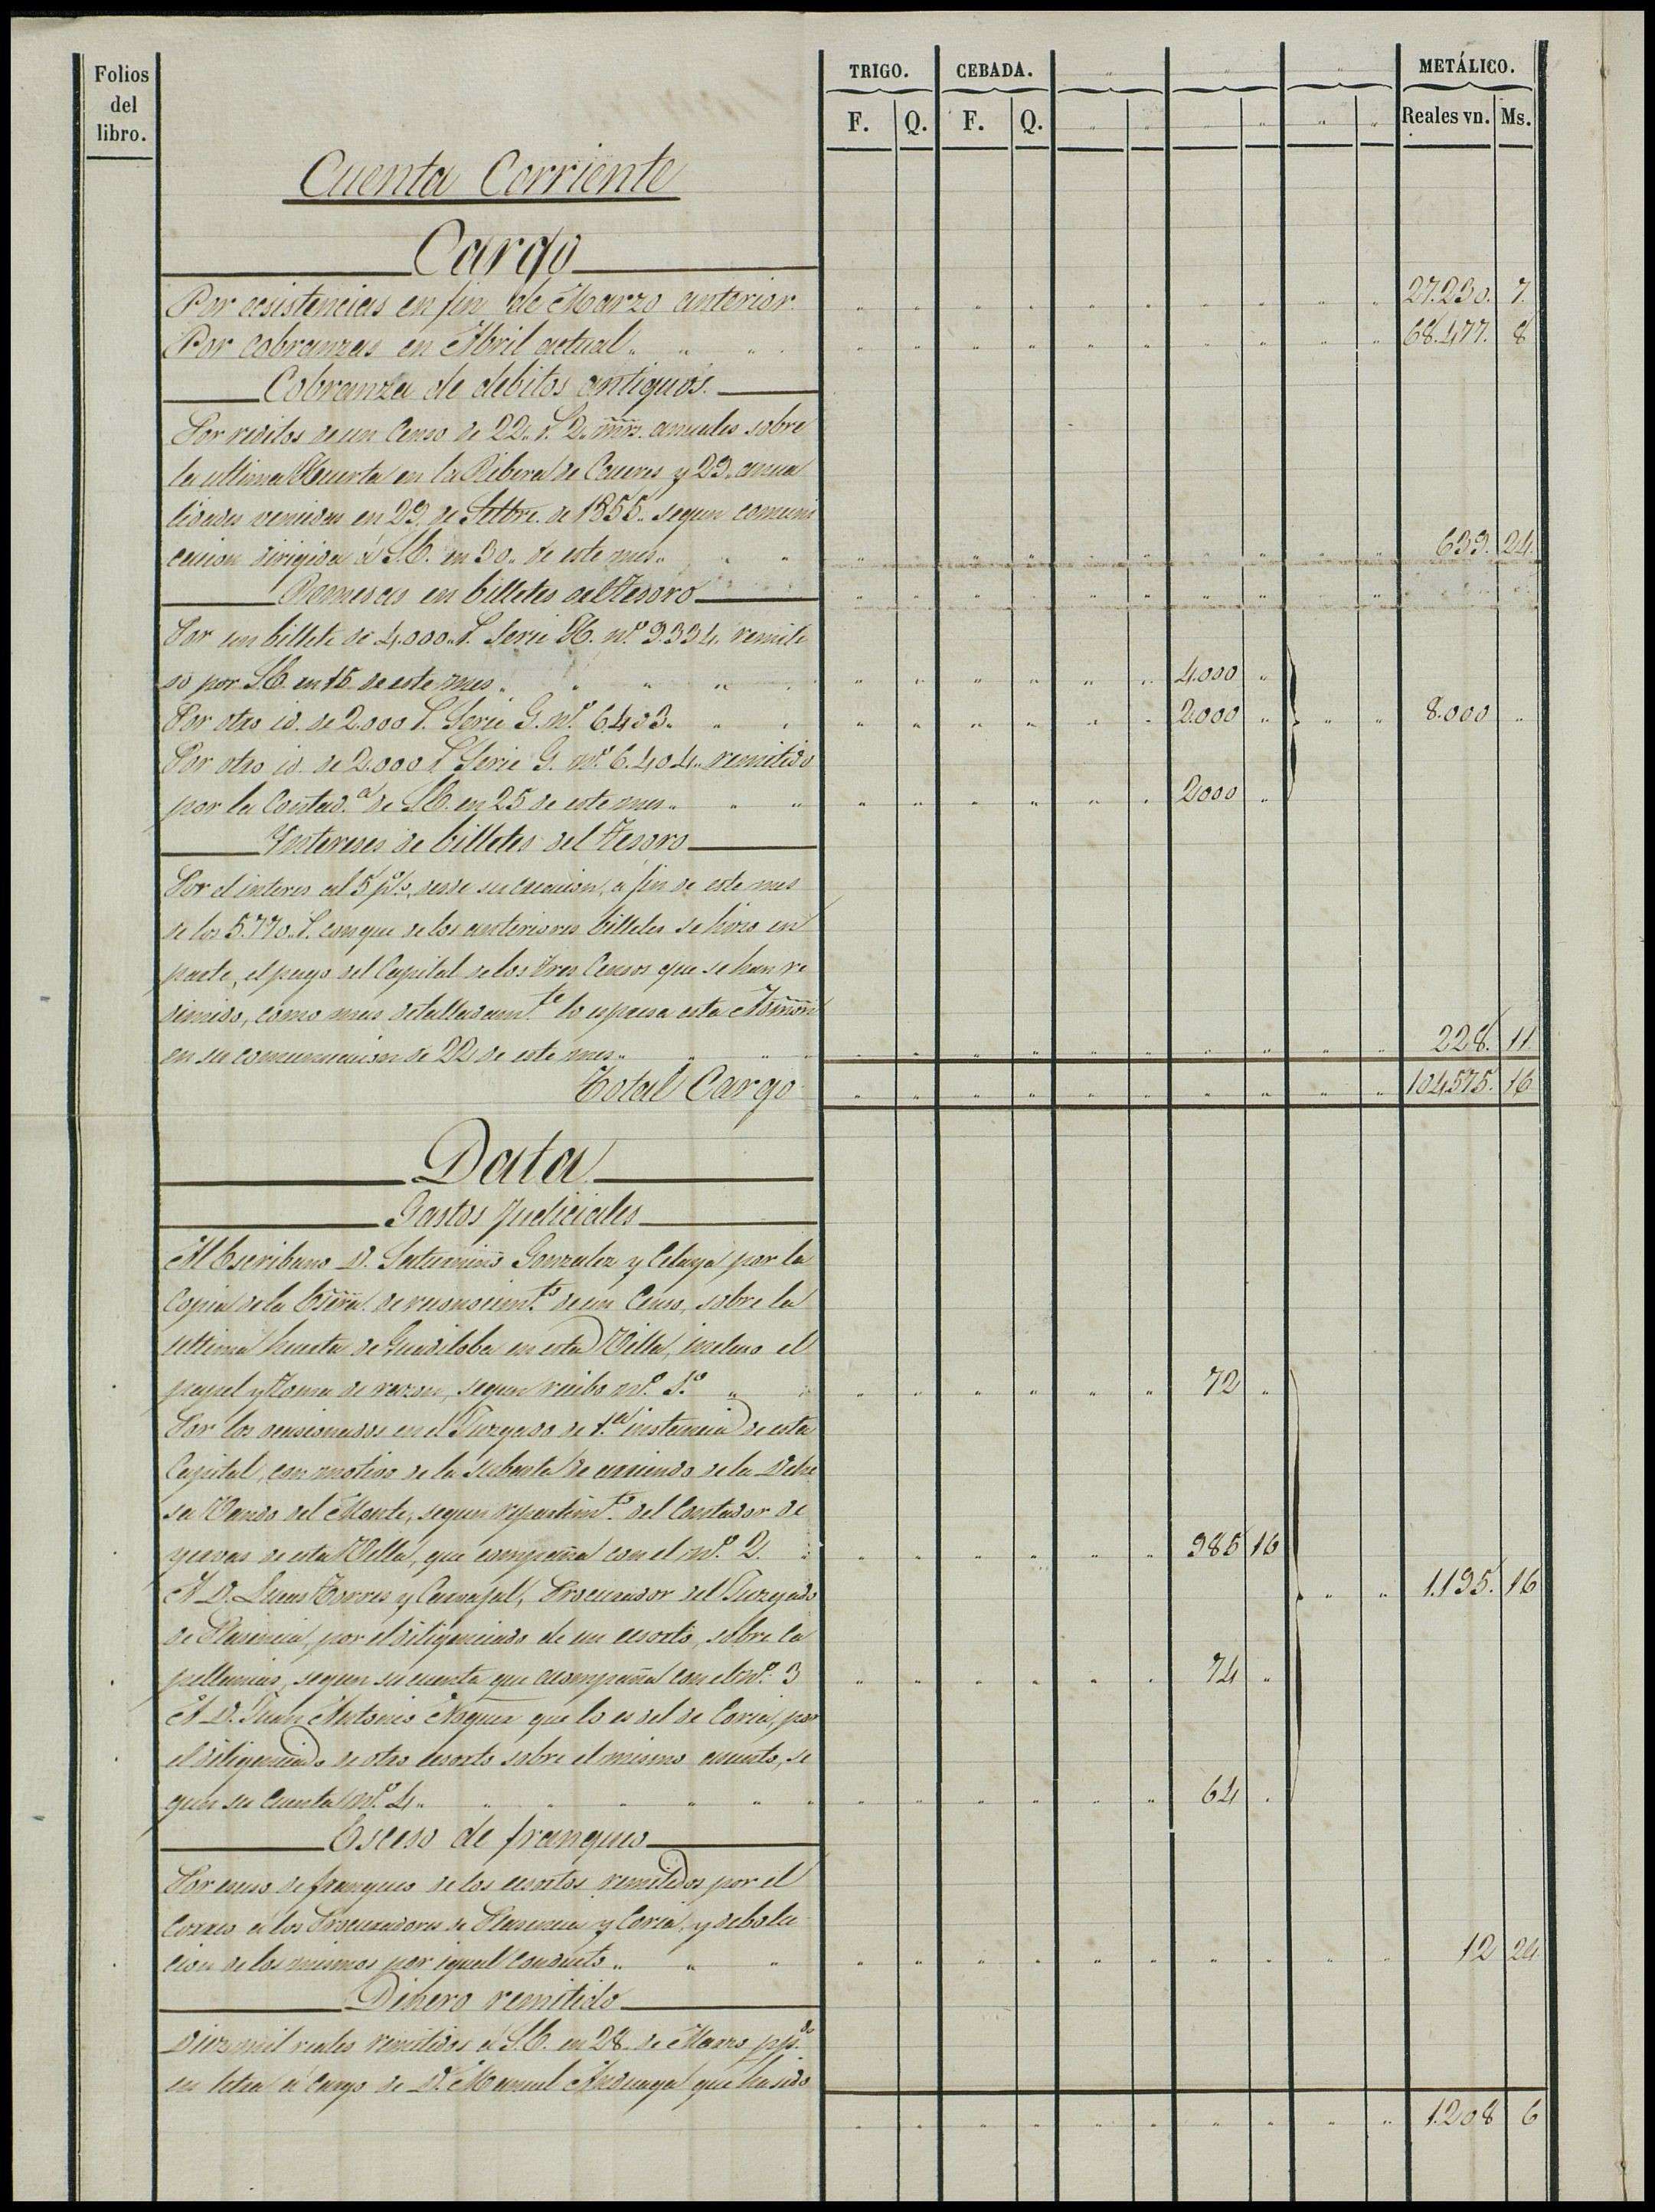 Folios del libro.
TRIGO. CEBADA. " " " METÁLICO.
F. Q. F. Q. " " " " " " Reales vn. Ms.
Cuenta Corriente
Cargo
Por ecsistencias en fin de Marzo anterior. 27.230. 7.
Por cobranzas en Abril actual " " " 68.477. 8
Cobranza de debitos antiguos.
Por reditos de un Censo de 22 r.s 2 mrs. anuales sobre
la ultima Huerta en la Ribera de Caceres y 29 anua
lidades vencidas en 29 de Setbre. de 1855 segun comuni
cacion dirigida á S.E. en 30 de este mes " " 639. 24.
Remesas en billetes del Tesoro
Por un billete de 4.000 r.s Serie H. n.º 9.334 remiti
do por S.E. en 15 de este mes " " " " 4.000 "
Por otro id. de 2.000 r.s Serie G. n.º 6.403 " " 2.000 " " " 8.000 "
Por otro id. de 2.000 r.s Serie G. n.º 6.404 remitido
por la Contad.ª de S.E. en 25 de este mes " " 2000 "
Yntereses de billetes del Tesoro
Por el interes al 5 p%, desde su creacion, á fin de este mes
de los 5.770 r.s con que de los anteriores billetes se hizo en
parte, el pago del Capital de los tres Censos que se han re
dimido, como mas detalladam.te lo espresa esta Admon
en su comunicacion de 22 de este mes " " " 228. 11.
Total Cargo 104575. 16
Data
Gastos judiciales
Al Escribano D. Saturnino Gonzalez y Celaya por la
Copia de la Escra. de reconocim.to de un Censo, sobre la
ultima huerta de Guadiloba en esta Villa, incluso el
papel y toma de razon, segun recibo n.º 1.º " " 72 "
Por los ocasionados en el Juzgado de 1.ª instancia de esta
Capital, con motivo de la subasta de arriendo de la Dehe
sa Vando del Monte, segun repartim.to del Contador de
yervas de esta Villa, que compaña con el n.º 2. " 985 16
A D. Lucas Torres y Carvajal, Procurador del Juzgado " " 1.195. 16
de Plasencia, por el diligenciado de un ecsorto, sobre ca
pellanias, segun su cuenta que acompaña con el n.º 3 74 "
A D. Juan Antonio que lo es del de Coria, por
el diligenciado de otro ecsorto sobre el mismo asunto, se
gun su Cuenta n.º 4 " " " " " " 64 "
Esceso de franqueo
Por esceso de franqueo de los ecsortos remitidos por el
Correo á los Procuradores de Plasencia y Coria, y debolu
cion de los mismos por igual conducto " " " 12 24
Dinero remitido
Diez mil reales remitidos á S.E. en 28 de Marzo pp.do
en letra á cargo de D. Manuel que ha sido
1.208 6